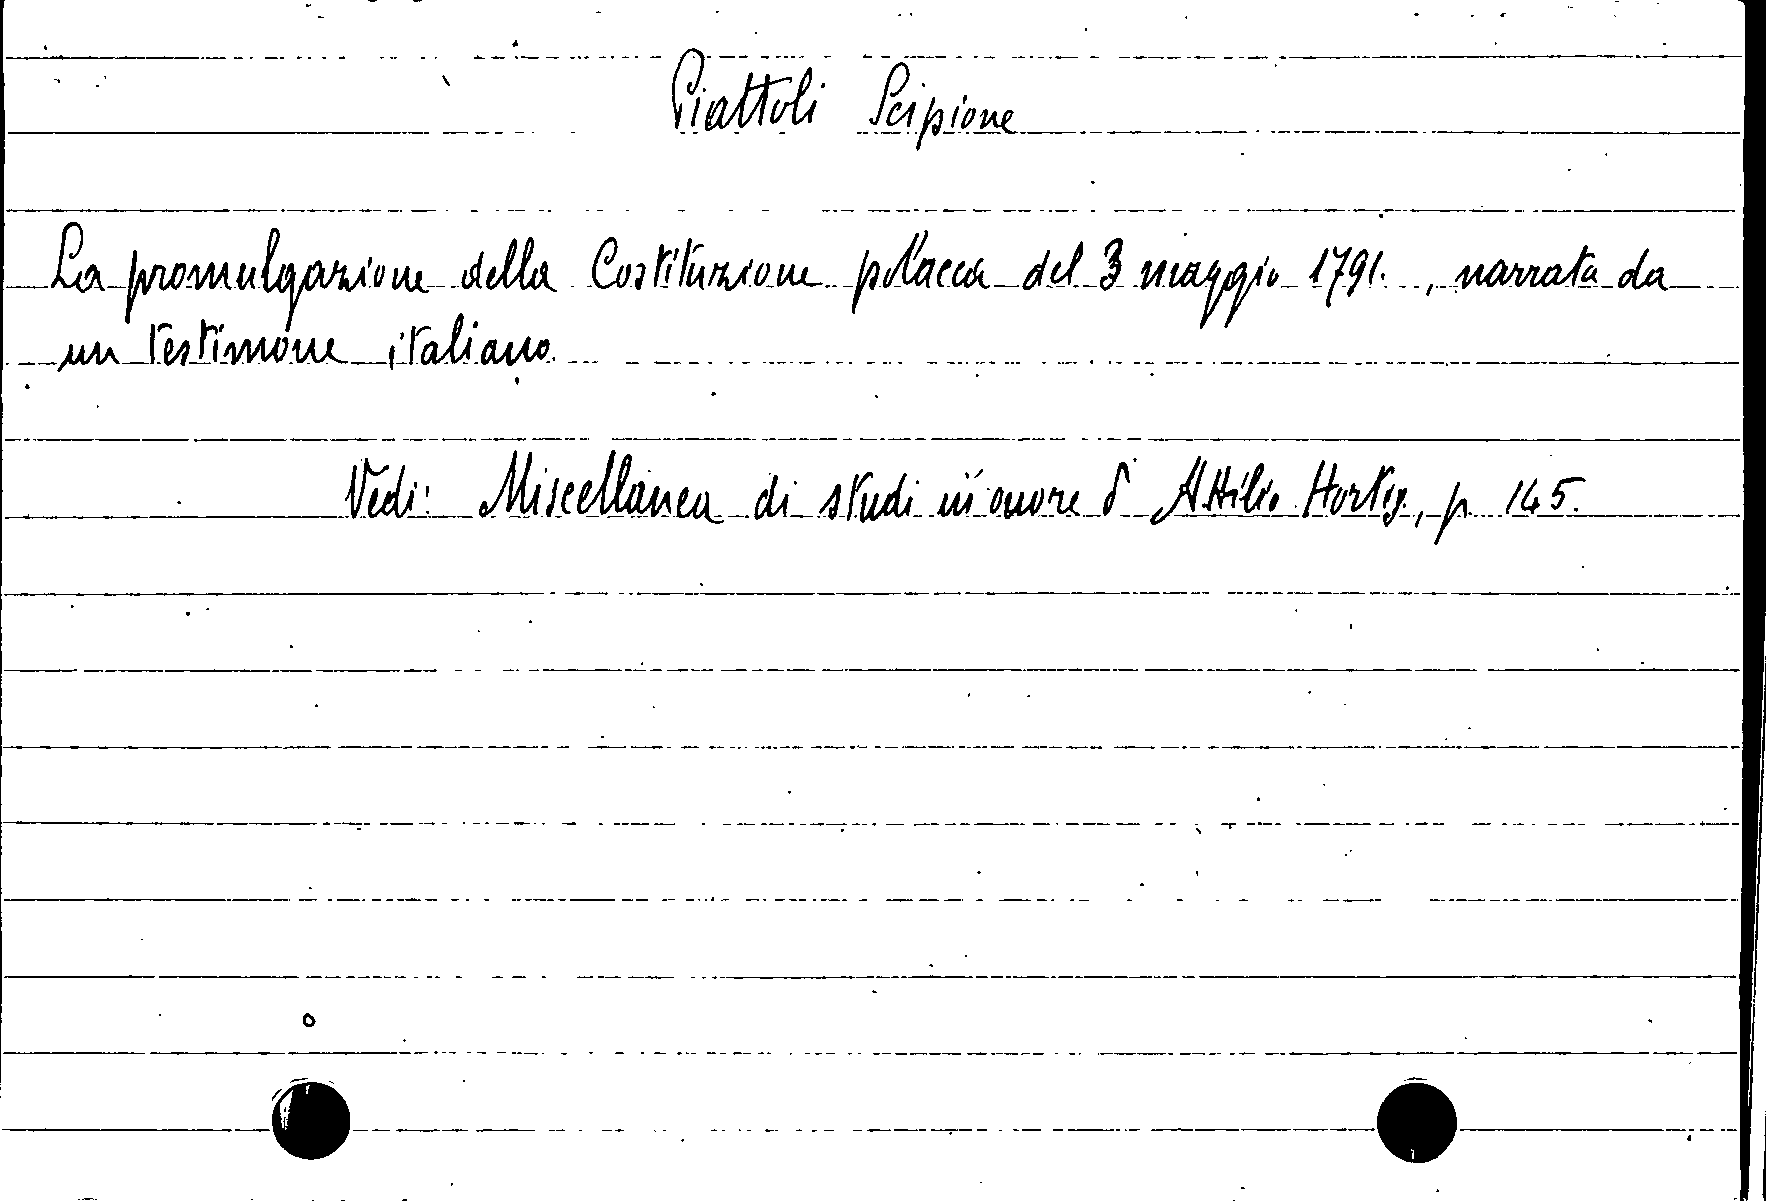 Piattoli Scipione
La promulgazione della Costituzione polacca del 3 maggio 1791. , narrata da
un testimone italiano.
Vedi: Miscellanea di studi in onore d' Attilio Hortis, p. 145.